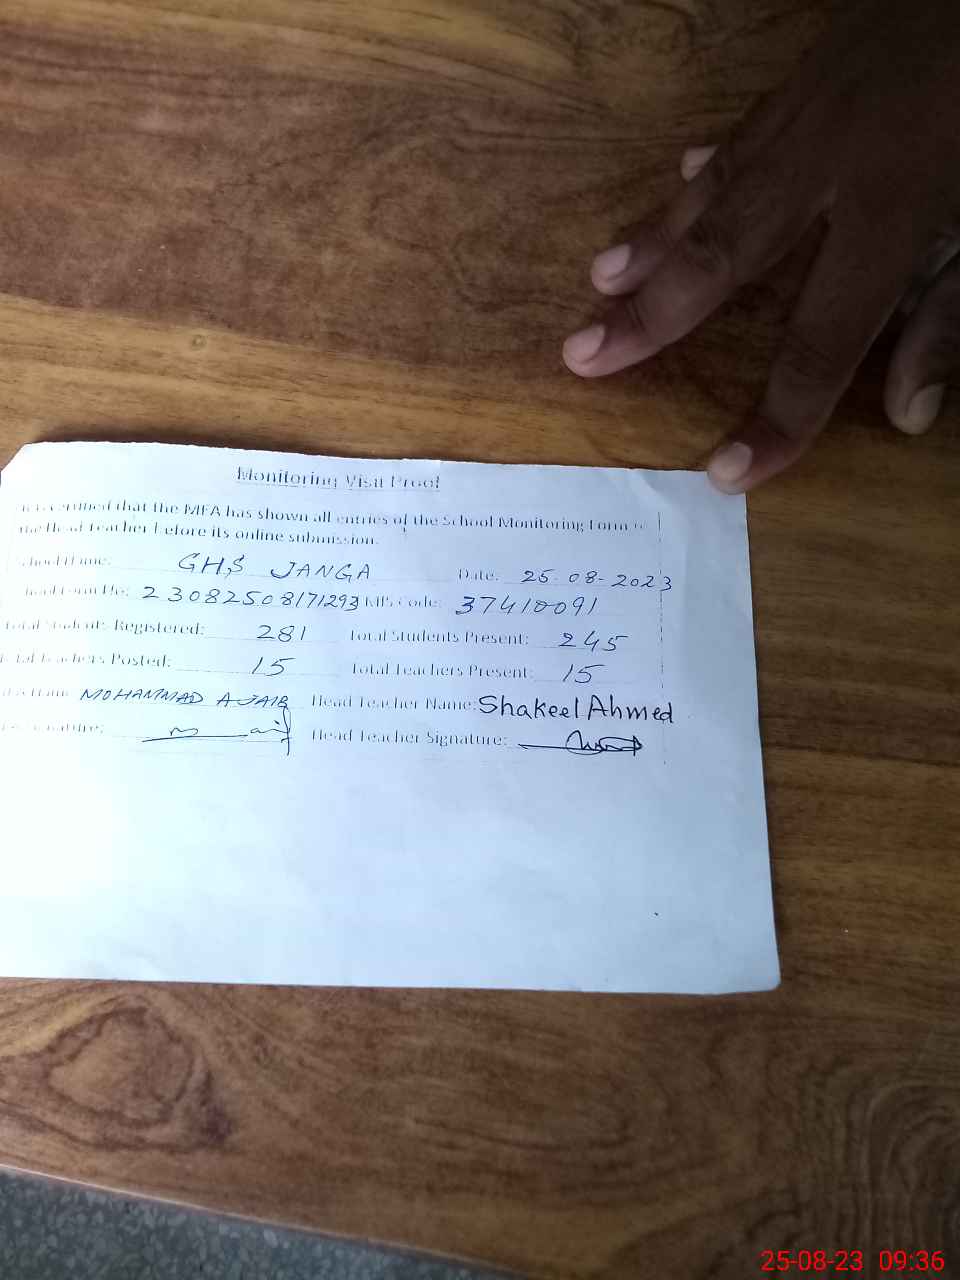 Monitoring Visit Proof
certified that the MEA has shown all entries of the School Monitoring Form to
the Head Teacher before its online submission.
School Name: GHS JANGA Date: 25-08-2023
Form No: 23082508171293 EMIS Code: 37410091
Total Students Registered: 281 Total Students Present: 245
Total Teachers Posted: 15 Total Teachers Present: 15
Name MOHAMMAD AJAIB Head Teacher Name: Shakeel Ahmed
Signature: Head Teacher Signature:
25-08-23 09:36